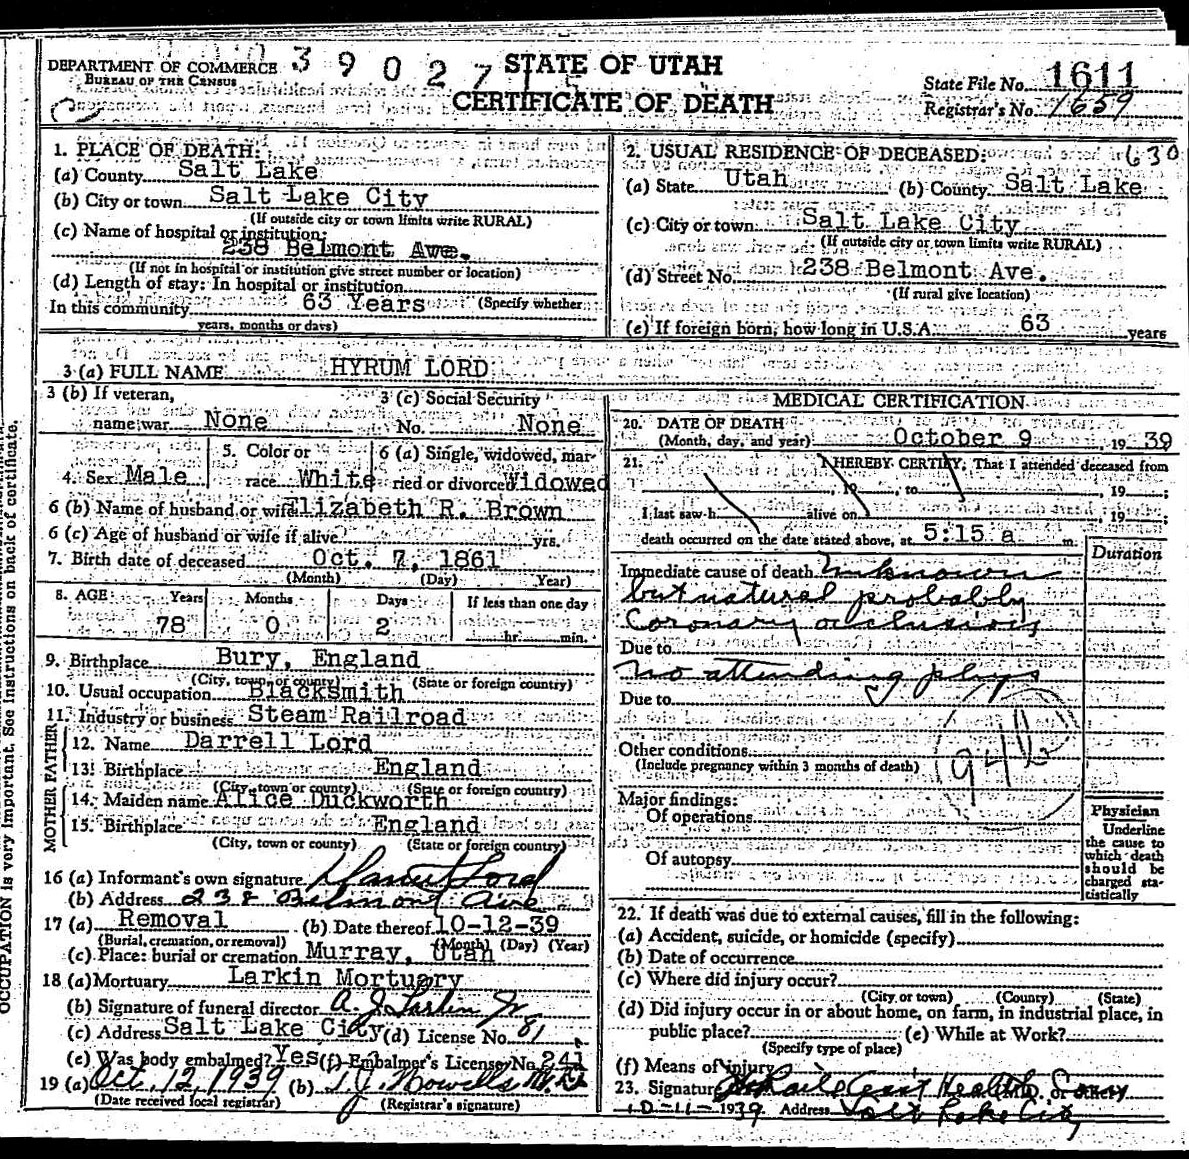 DEPARTMENT OF COMMERCE
BUREAU OF THE CENSUS
39027
15
STATE OF UTAH
CERTIFICATE OF DEATH
State File No. 1611
Registrar's No. 1659
1. PLACE OF DEATH:
(a) County Salt Lake
(b) City or town Salt Lake City
(If outside city or town limits write RURAL)
(c) Name of hospital or institution:
238 Belmont Ave.
(If not in hospital or institution give street number or location)
(d) Length of stay: In hospital or institution
In this community 63 Years (Specify whether
years, months or days)
2. USUAL RESIDENCE OF DECEASED: 630
(a) State Utah (b) County Salt Lake
(c) City or town Salt Lake City
(If outside city or town limits write RURAL)
(d) Street No. 238 Belmont Ave.
(If rural give location)
(e) If foreign born, how long in U.S.A. 63 years
3 (a) FULL NAME HYRUM LORD
3 (b) If veteran,
name war None
3 (c) Social Security
No. None
4. Sex Male
5. Color or
race White
6 (a) Single, widowed, mar-
ried or divorced Widowed
6 (b) Name of husband or wife Elizabeth R. Brown
6 (c) Age of husband or wife if alive yrs.
7. Birth date of deceased Oct. 7, 1861
(Month) (Day) Year)
8. AGE: Years Months Days If less than one day
78 0 2 hr. min.
9. Birthplace Bury, England
(City, town, or county) (State or foreign country)
10. Usual occupation Blacksmith
11. Industry or business Steam Railroad
FATHER
12. Name Darrell Lord
13. Birthplace England
(City, town or county) (State or foreign country)
MOTHER
14. Maiden name Alice Duckworth
15. Birthplace England
(City, town or county) (State or foreign country)
16 (a) Informant's own signature Lord
(b) Address 238 Belmont Ave
17 (a) Removal (b) Date thereof 10-12-39
(Burial, cremation, or removal) (Month) (Day) (Year)
(c) Place: burial or cremation Murray, Utah
18 (a) Mortuary Larkin Mortuary
(b) Signature of funeral director A. J. Larkin Jr
(c) Address Salt Lake City (d) License No. 81
(e) Was body embalmed? Yes (f) Embalmer's License No. 241
19 (a) Oct. 12, 1939 (b) T. J. Howells M.D.
(Date received local registrar) (Registrar's signature)
MEDICAL CERTIFICATION
20. DATE OF DEATH
(Month, day, and year) October 9, 1939
21. I HEREBY CERTIFY, That I attended deceased from
, 19 , to , 19 ;
I last saw h alive on , 19 ;
death occurred on the date stated above, at 5:15 a m.
Duration
Immediate cause of death Unknown
but natural probably
Coronary occlusion
Due to
No attending phys
Due to
Other conditions
(Include pregnancy within 3 months of death)
94b
Major findings:
Of operations
Of autopsy
Physician
Underline
the cause to
which death
should be
charged sta-
tistically
22. If death was due to external causes, fill in the following:
(a) Accident, suicide, or homicide (specify)
(b) Date of occurrence
(c) Where did injury occur?
(City or town) (County) (State)
(d) Did injury occur in or about home, on farm, in industrial place, in
public place? (e) While at Work?
(Specify type of place)
(f) Means of injury
23. Signature Health M.D., or other)
10-11-1939 Address Salt Lake City
OCCUPATION is very important. See instructions on back of certificate.